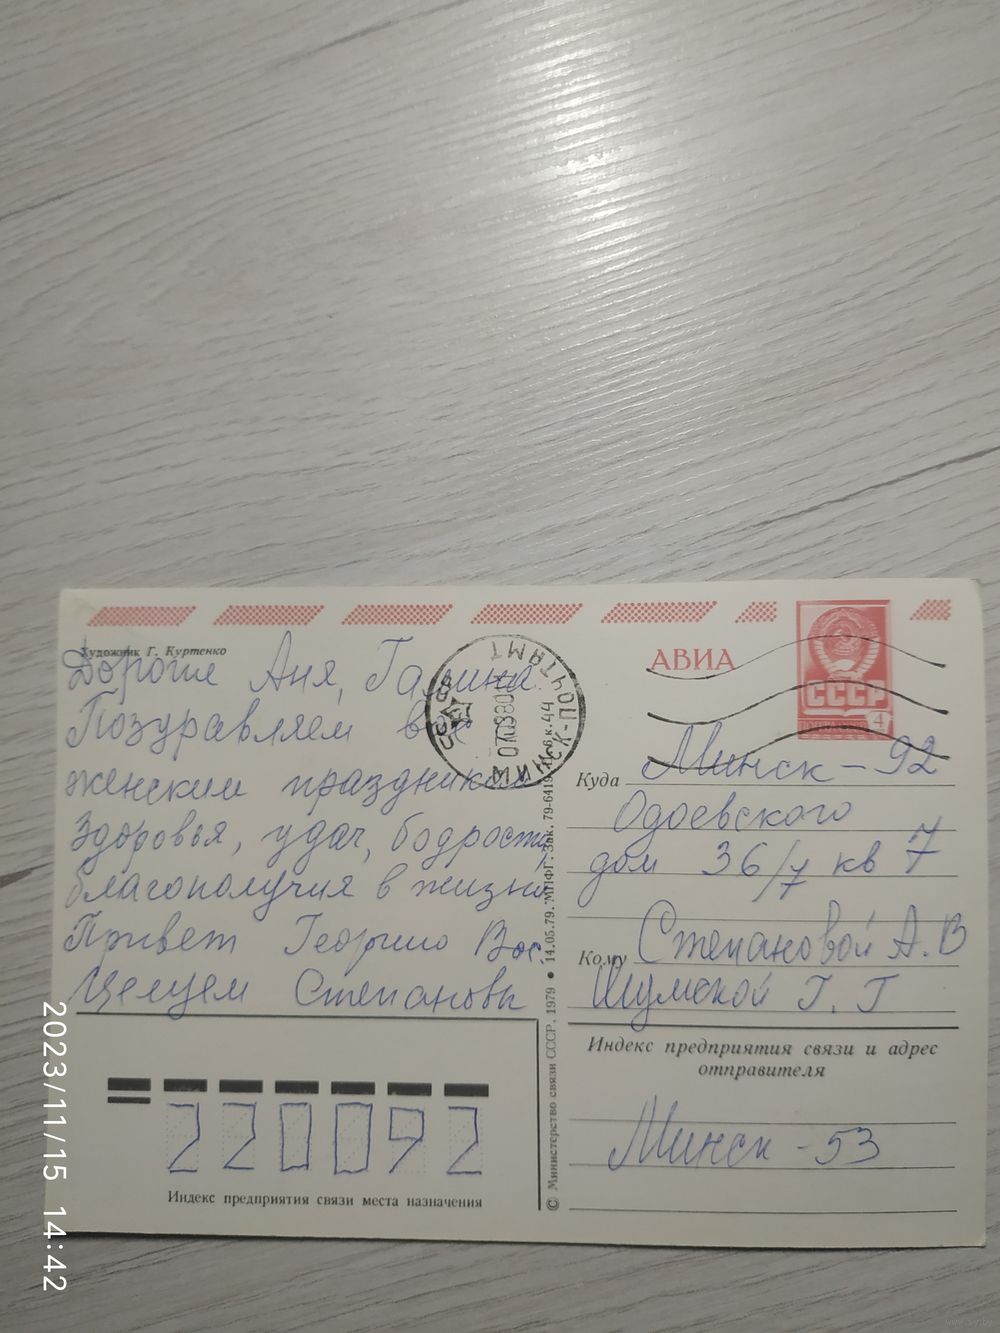 Художник Г. Куртенко
Дорогие Аня, Галина.
Поздравляем вас
женским праздником
Здоровья, удач, бодрости,
благополучия в жизни
Привет Георгию Вас.
Целуем Степановы
220092
Индекс предприятия связи места назначения
© Министерство связи СССР. 1979 • 14.05.79. МПФГ. Зак. 79-6419. 6 к.
СССР
МИНСК-ПОЧТАМТ
АВИА
СССР
4
Куда
Минск-92
Одоевского
дом 36/7 кв 7
Кому
Степановой А.В
Шумской Г.Г
Индекс предприятия связи и адрес
отправителя
Минск-53
2023/11/15 14:42